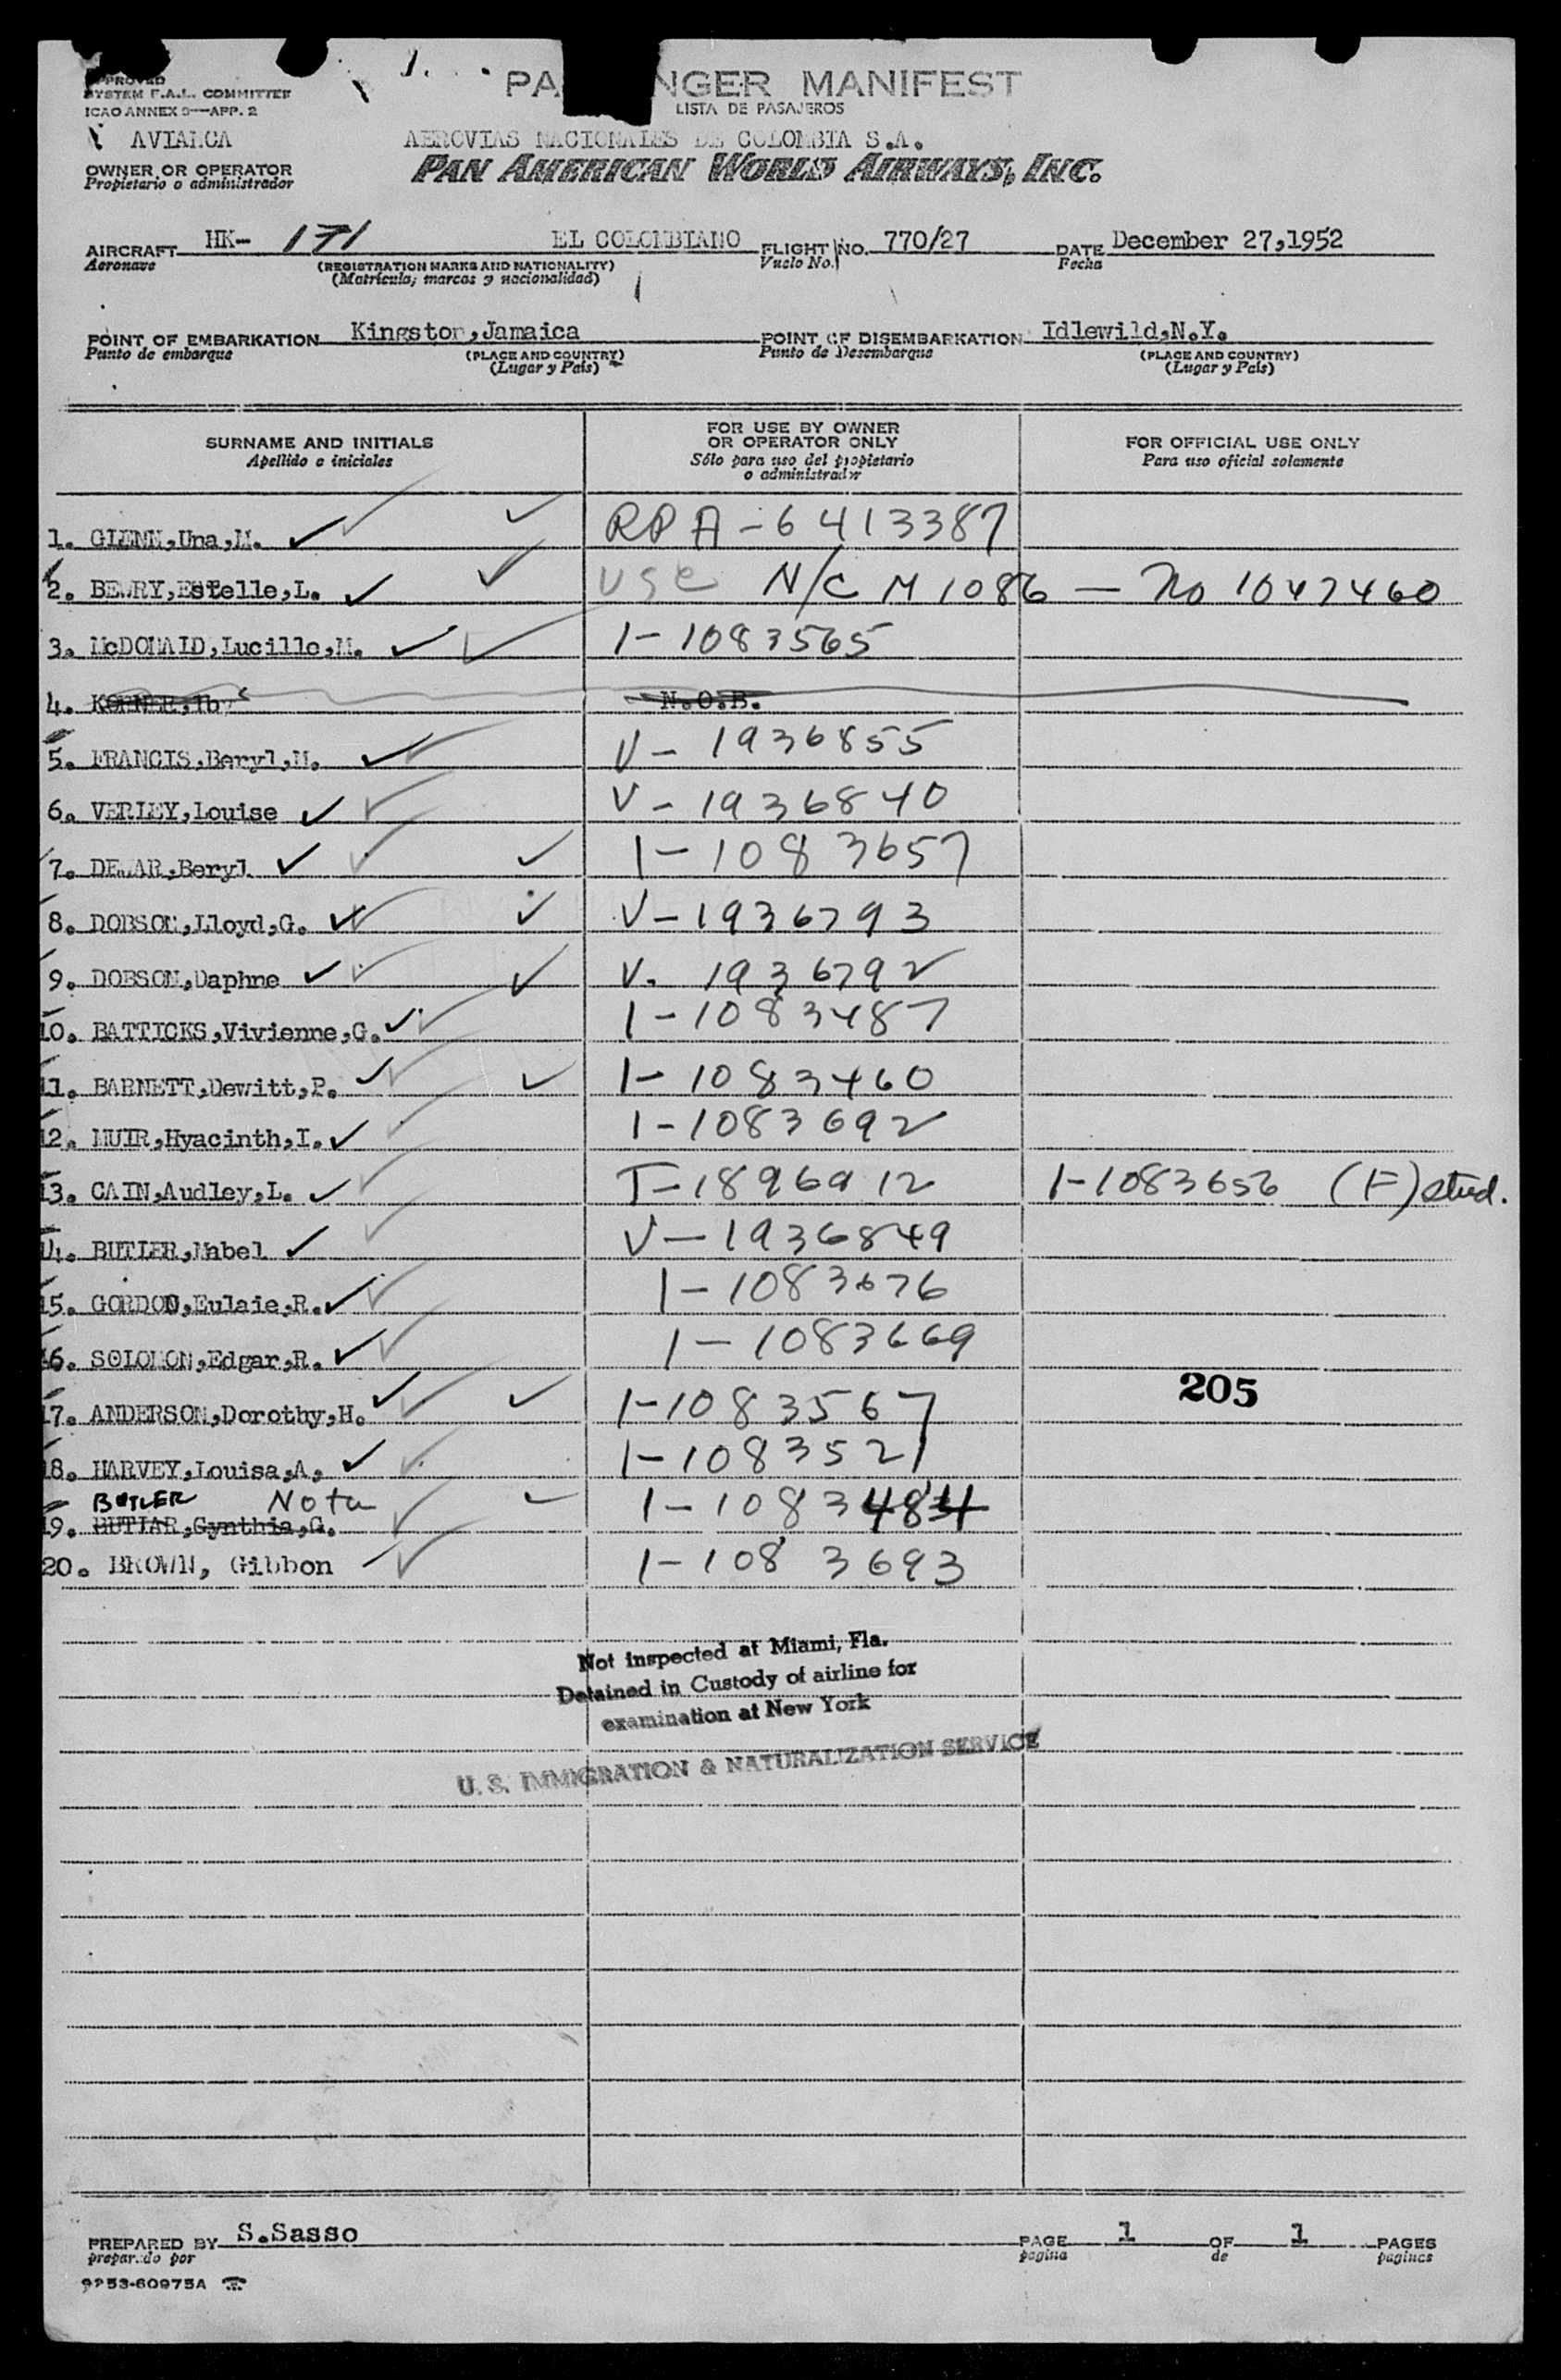 APPROVED
SYSTEM F.A.L. COMMITTEE
ICAO ANNEX 9—APP. 2
PA NGER MANIFEST
LISTA DE PASAJEROS
AVIANCA
AEROVIAS NACIONALES DE COLOMBIA S.A.
OWNER OR OPERATOR
Propietario o administrador
PAN AMERICAN WORLD AIRWAYS, INC.
AIRCRAFT HK- 171 EL COLOMBIANO FLIGHT NO. 770/27 DATE December 27,1952
Aeronave (REGISTRATION MARKS AND NATIONALITY) Vuelo No. Fecha
(Matrícula; marcas y nacionalidad)
POINT OF EMBARKATION Kingston,Jamaica POINT OF DISEMBARKATION Idlewild,N.Y.
Punto de embarque (PLACE AND COUNTRY) Punto de Desembarque (PLACE AND COUNTRY)
(Lugar y País) (Lugar y País)
SURNAME AND INITIALS FOR USE BY OWNER OR OPERATOR ONLY FOR OFFICIAL USE ONLY
Apellido e iniciales Sólo para uso del propietario o administrador Para uso oficial solamente
1. GLENN,Una,M. RPA-6413387
2. BEWRY,Estelle,L. USC N/C M 1086 — No 1047460
3. McDONALD,Lucille,M. 1-1083565
4. KORNER,Ib N.O.B.
5. FRANCIS,Beryl,M. V-1936855
6. VERLEY,Louise V-1936840
7. DEWAR,Beryl 1-1083657
8. DOBSON,Lloyd,G. V-1936793
9. DOBSON,Daphne V. 1936792
10. BATTICKS,Vivienne,G. 1-1083487
11. BARNETT,Dewitt,P. 1-1083460
12. MUIR,Hyacinth,I. 1-1083692
13. CAIN,Audley,L. T-1896912 1-1083656 (F) stud.
14. BUTLER,Mabel V-1936849
15. GORDON,Eulaie,R. 1-1083676
16. SOLOMON,Edgar,R. 1-1083669
205
17. ANDERSON,Dorothy,H. 1-1083567
18. HARVEY,Louisa,A. 1-1083521
BUTLER Nota
19. BUTLAR,Cynthia,G. 1-1083484
20. BROWN, Gibbon 1-1083693
Not inspected at Miami, Fla.
Detained in Custody of airline for
examination at New York
U. S. IMMIGRATION & NATURALIZATION SERVICE
PREPARED BY S.Sasso PAGE 1 OF 1 PAGES
preparado por pagina de paginas
9253-60975A